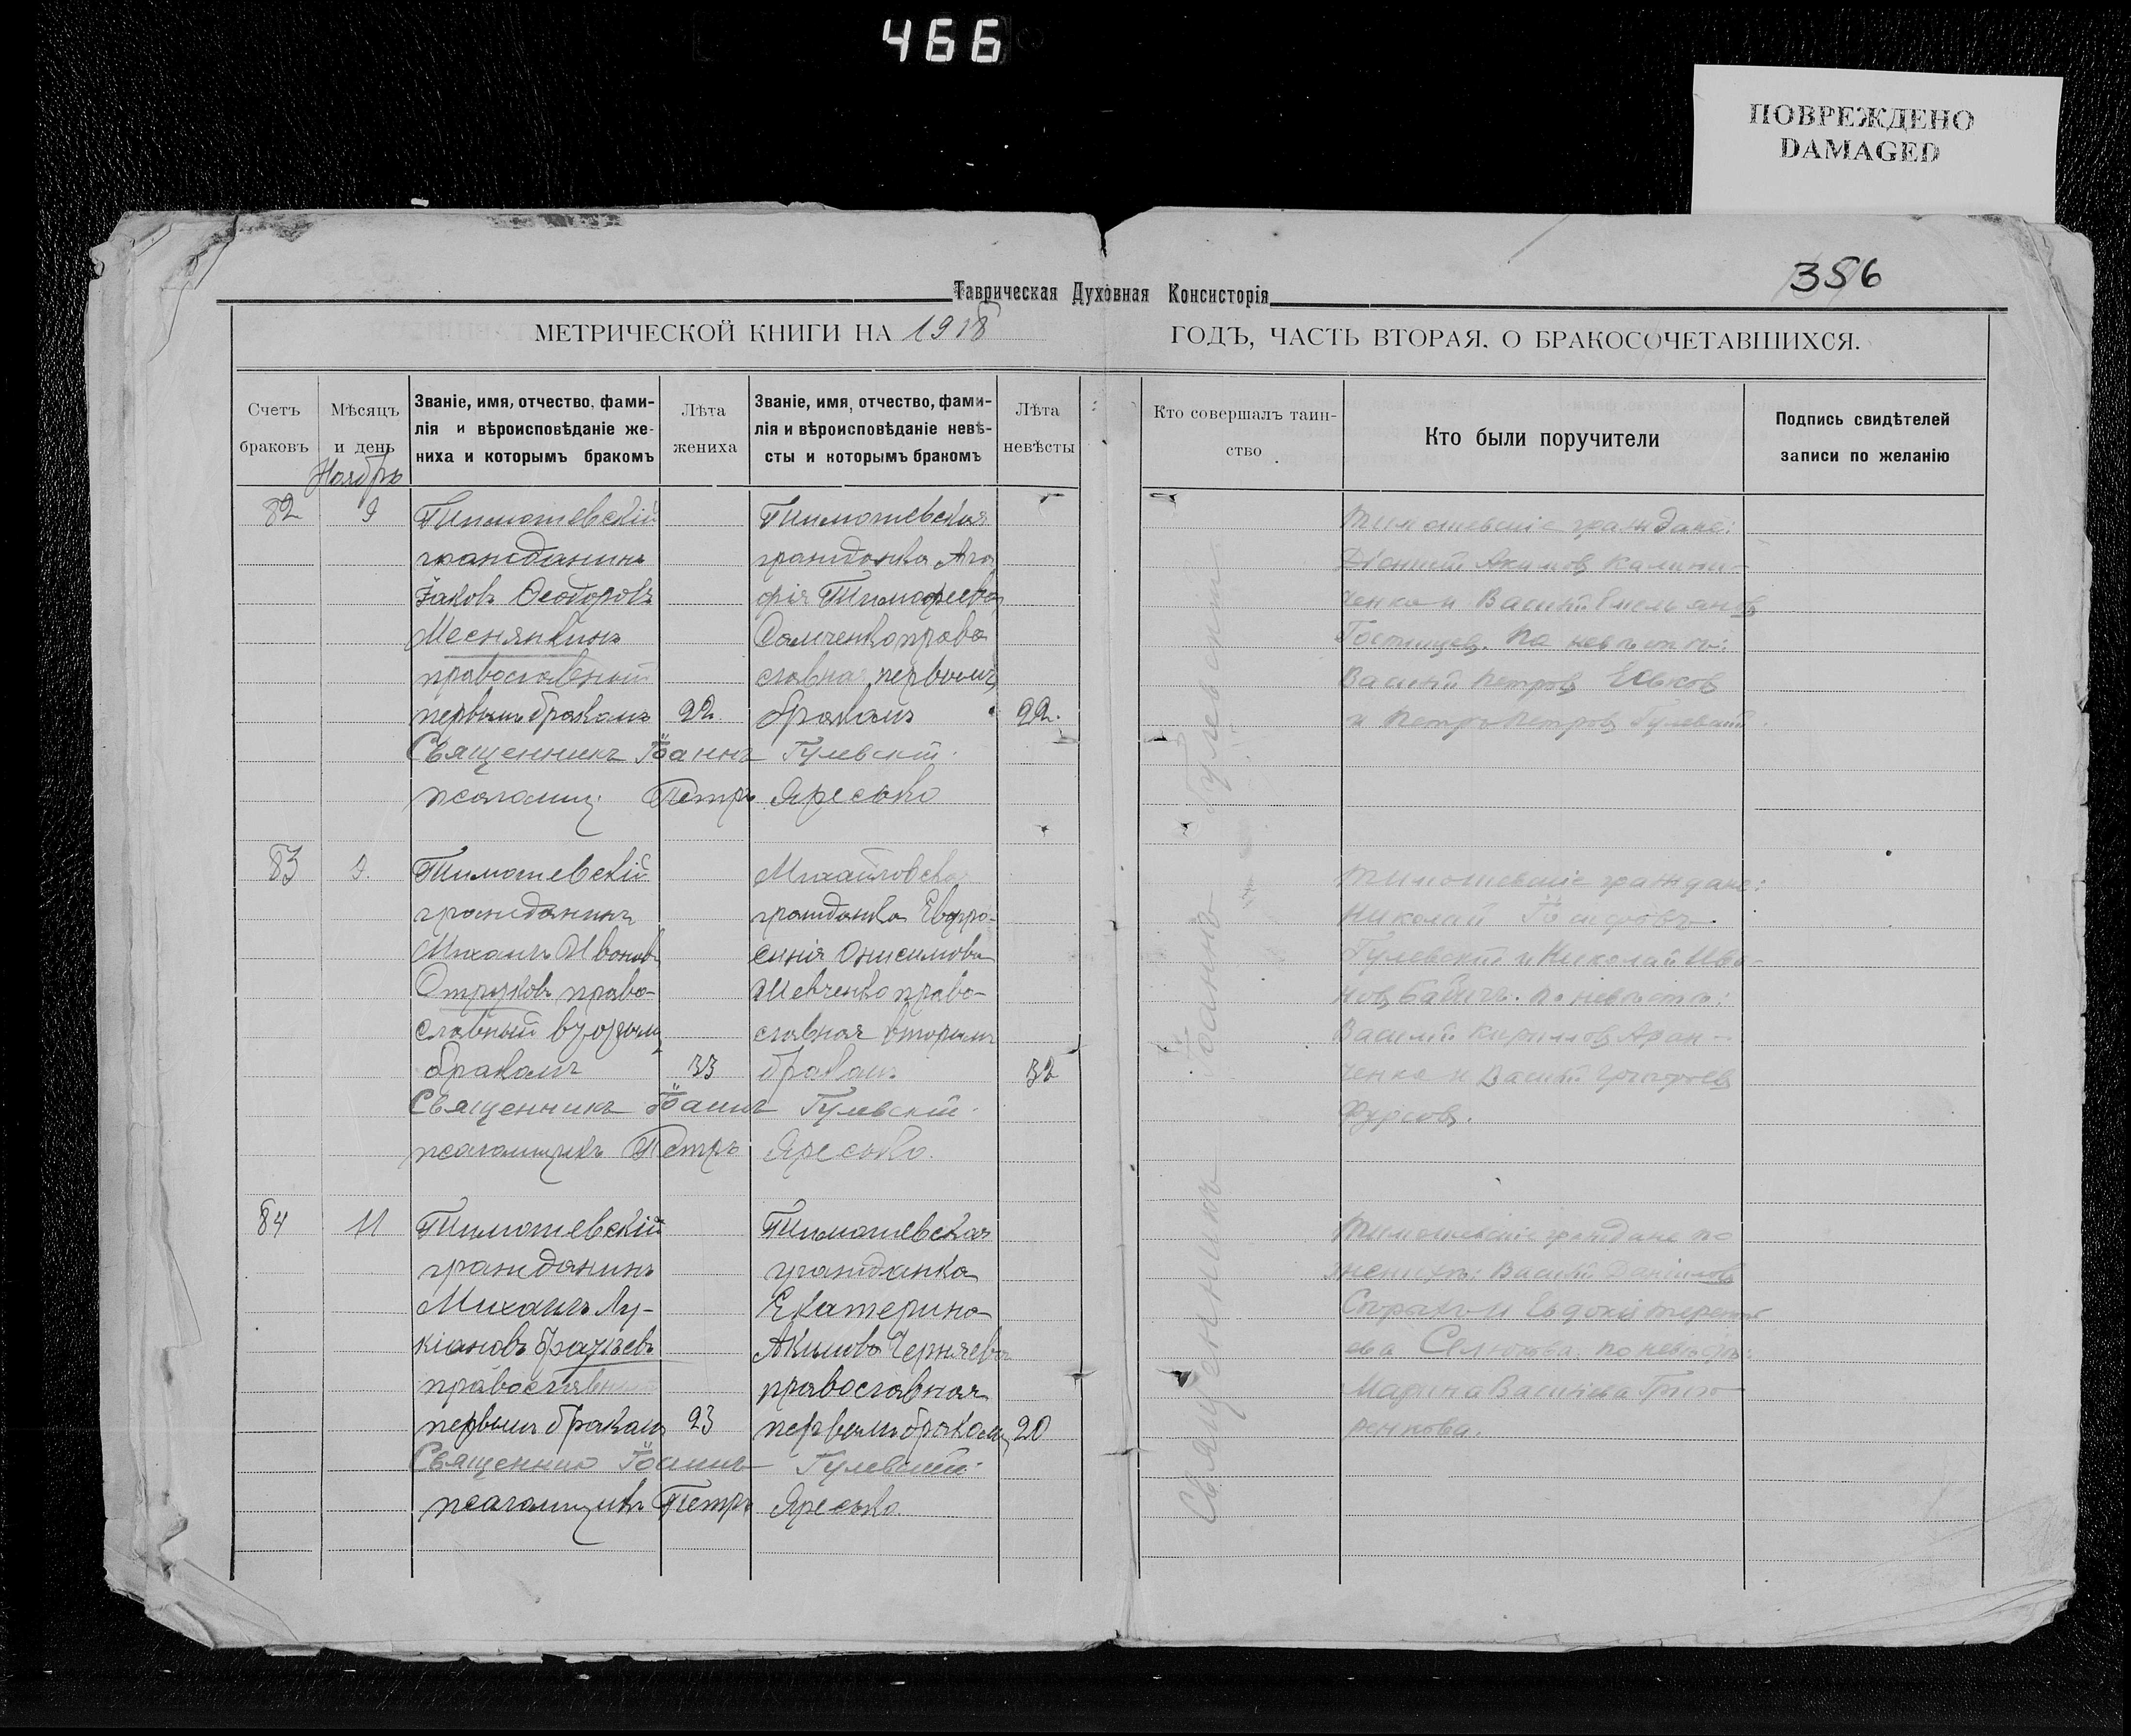 466
ПОВРЕЖДЕНО
DAMAGED
356
Таврическая Духовная Консисторія
МЕТРИЧЕСКОЙ КНИГИ НА 1918 ГОДЪ, ЧАСТЬ ВТОРАЯ, О БРАКОСОЧЕТАВШИХСЯ.
Счетъ браковъ
Мѣсяцъ и день
Званіе, имя, отчество, фами-
лія и вѣроисповѣданіе же-
ниха и которымъ бракомъ
Лѣта жениха
Званіе, имя, отчество, фами-
лія и вѣроисповѣданіе невѣ-
сты и которымъ бракомъ
Лѣта невѣсты
Кто совершалъ таин-
ство
Кто были поручители
Подпись свидѣтелей
записи по желанію
Ноябрь
82
9
Тимошевскій
гражданинъ
Іаковъ Ѳеодоровъ
Меснянкинъ
православный
первымъ бракомъ
22
Тимошевская
гражданка Ага
фія Тимофеева
Самченко право
славная первымъ
бракомъ
22.
Священникъ Іоаннъ Гулевскій.
псаломщ. Петръ Яресько
Тимошевскіе граждане:
Акимовъ Калини-
ченко и Василій Емельяновъ
Гостищев. По невѣстѣ:
Василій Петровъ
и Петръ Петровъ Гулевскій.
83
9.
Тимошевскій
гражданинъ
Михаилъ Ивановъ
Отрязковъ право-
славный вторымъ
бракомъ
33
Михайловская
гражданка Евфро-
синія Онисимова
Шевченко право-
славная вторымъ
бракомъ
32
Священникъ Іоаннъ Гулевскій.
псаломщикъ Петръ Яресько.
Тимошевскіе граждане:
Николай Іосифовъ
Гулевскій и Николай Ива-
новъ По невѣстѣ:
Василій Кириловъ
ченко и Василій Григорьевъ
Фурсовъ.
84
11
Тимошевскій
гражданинъ
Михаилъ Лу-
кіановъ Бразиевъ
православный
первымъ бракомъ
23
Тимошевская
гражданка
Екатерина
Акимова Черняева
православная
первымъ бракомъ
20
Священникъ Іоаннъ Гулевскій.
псаломщикъ Петръ Яресько.
Тимошевскіе граждане по
женихѣ: Василій Даниловъ
и Евдокія Терентьева
по невѣстѣ:
Марина Васильева Григо-
ренкова.
Священникъ Іоаннъ Гулевскій